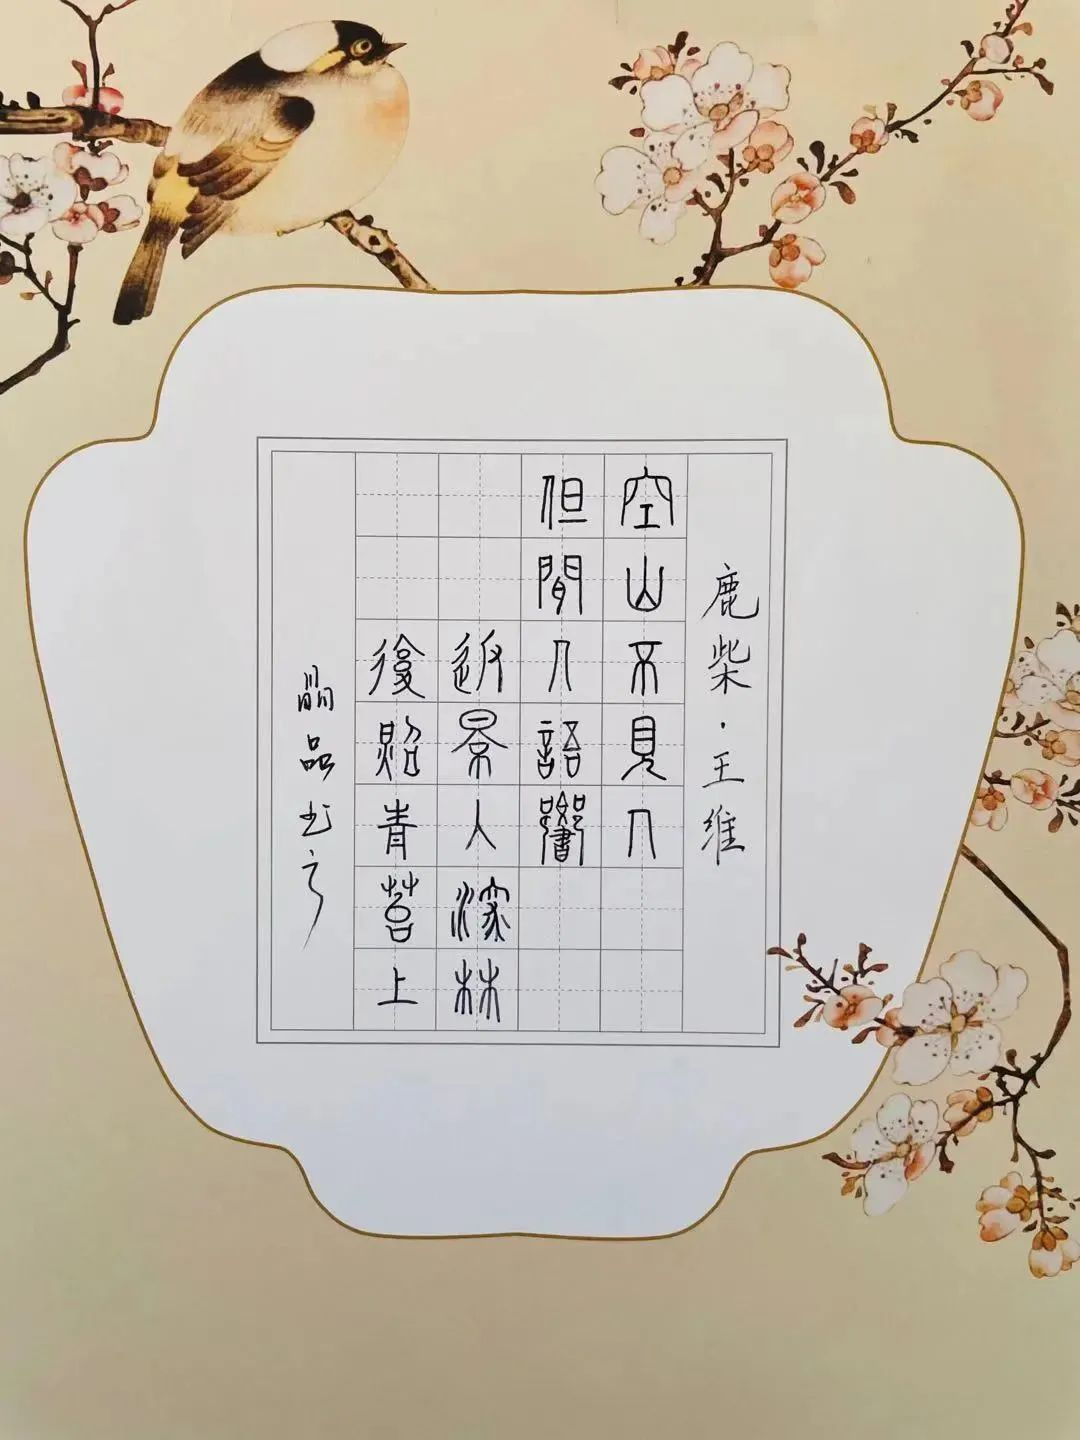 鹿柴·王维
空山不見人
但聞人語響
返景入深林
復照青苔上
晶品书